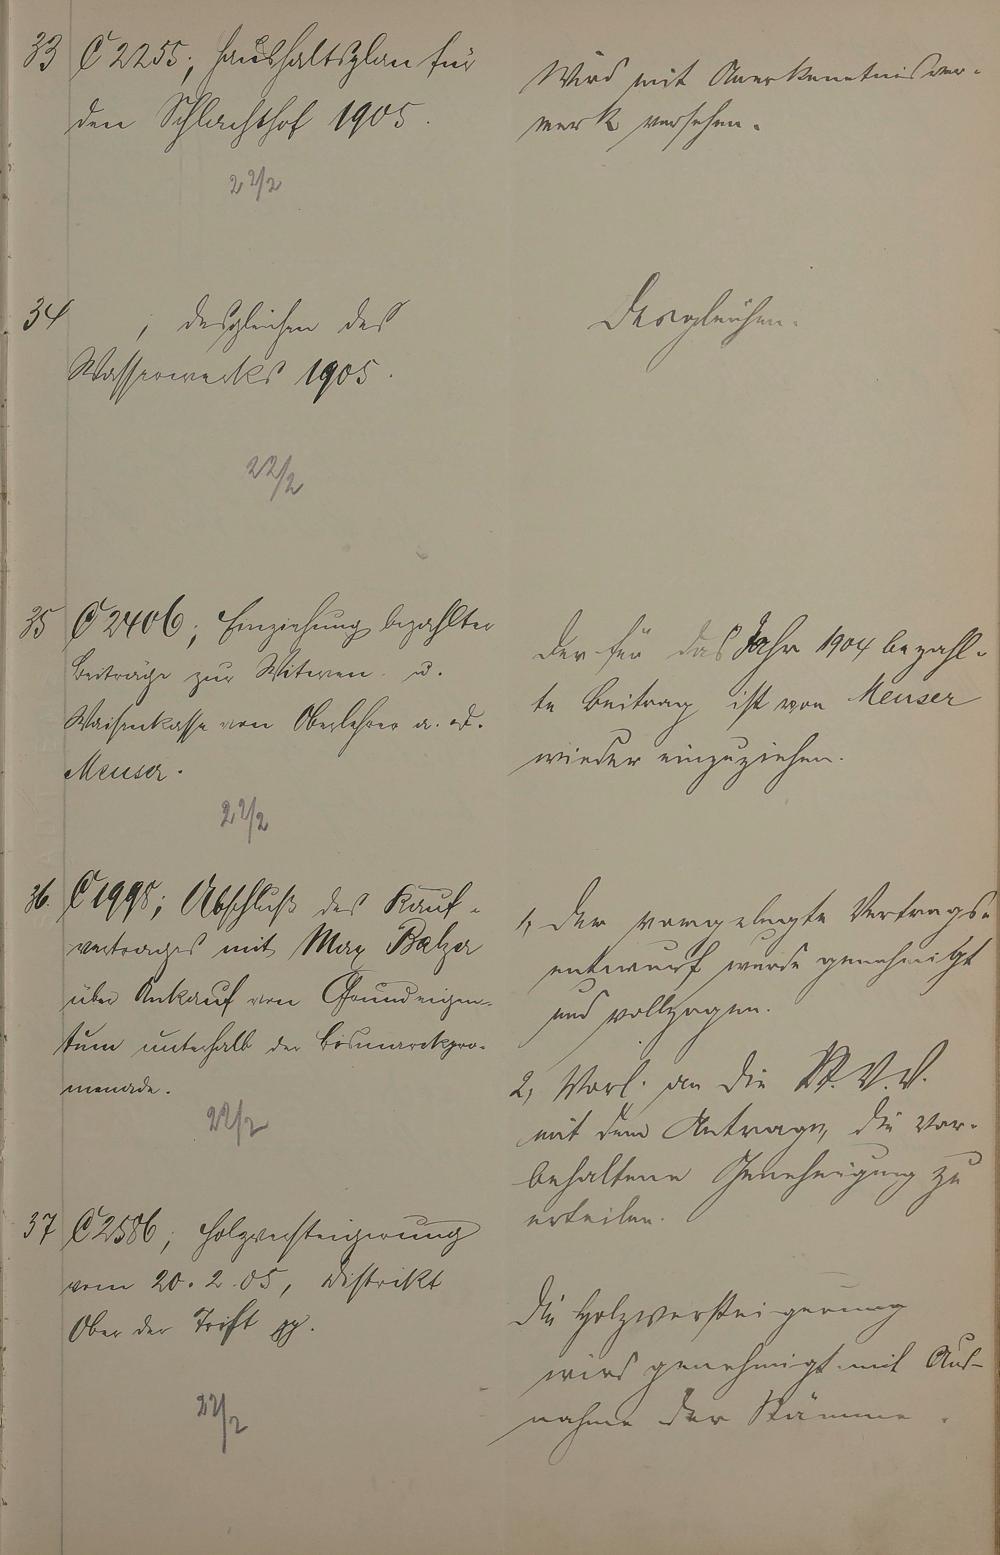 33 C 2255; Haushaltsplan für
den Schlachthof 1905.
22/2
Wird mit Anerkenntnisver-
merk versehen.
34 ; desgleichen des
Wasserwerks 1905.
22/2
Desgleichen.
35 C 2406; Einziehung bezahlter
Beiträge zur Witwen- u.
Waisenkasse von Oberlehrer a. D.
Meuser.
22/2
Der für das Jahr 1904 bezahl-
te Beitrag ist von Meuser
wieder einzuziehen.
36. C 1998; Abschluß des Kauf-
vertrages mit Max Balzer
über Ankauf von Grundeigen-
tum unterhalb der Bismarckpro-
menade.
22/2
1, Der vorgelegte Vertrags-
entwurf wurde genehmigt
und vollzogen.
2, Vorl. an die St. V. V.
mit dem Antrage, die vor-
behaltene Genehmigung zu
erteilen.
37 C 2586; Holzversteigerung
vom 20.2.05, Distrikt
Ober der Trift pp.
22/2
Die Holzversteigerung
wird genehmigt mit Aus-
nahme der Stämme.